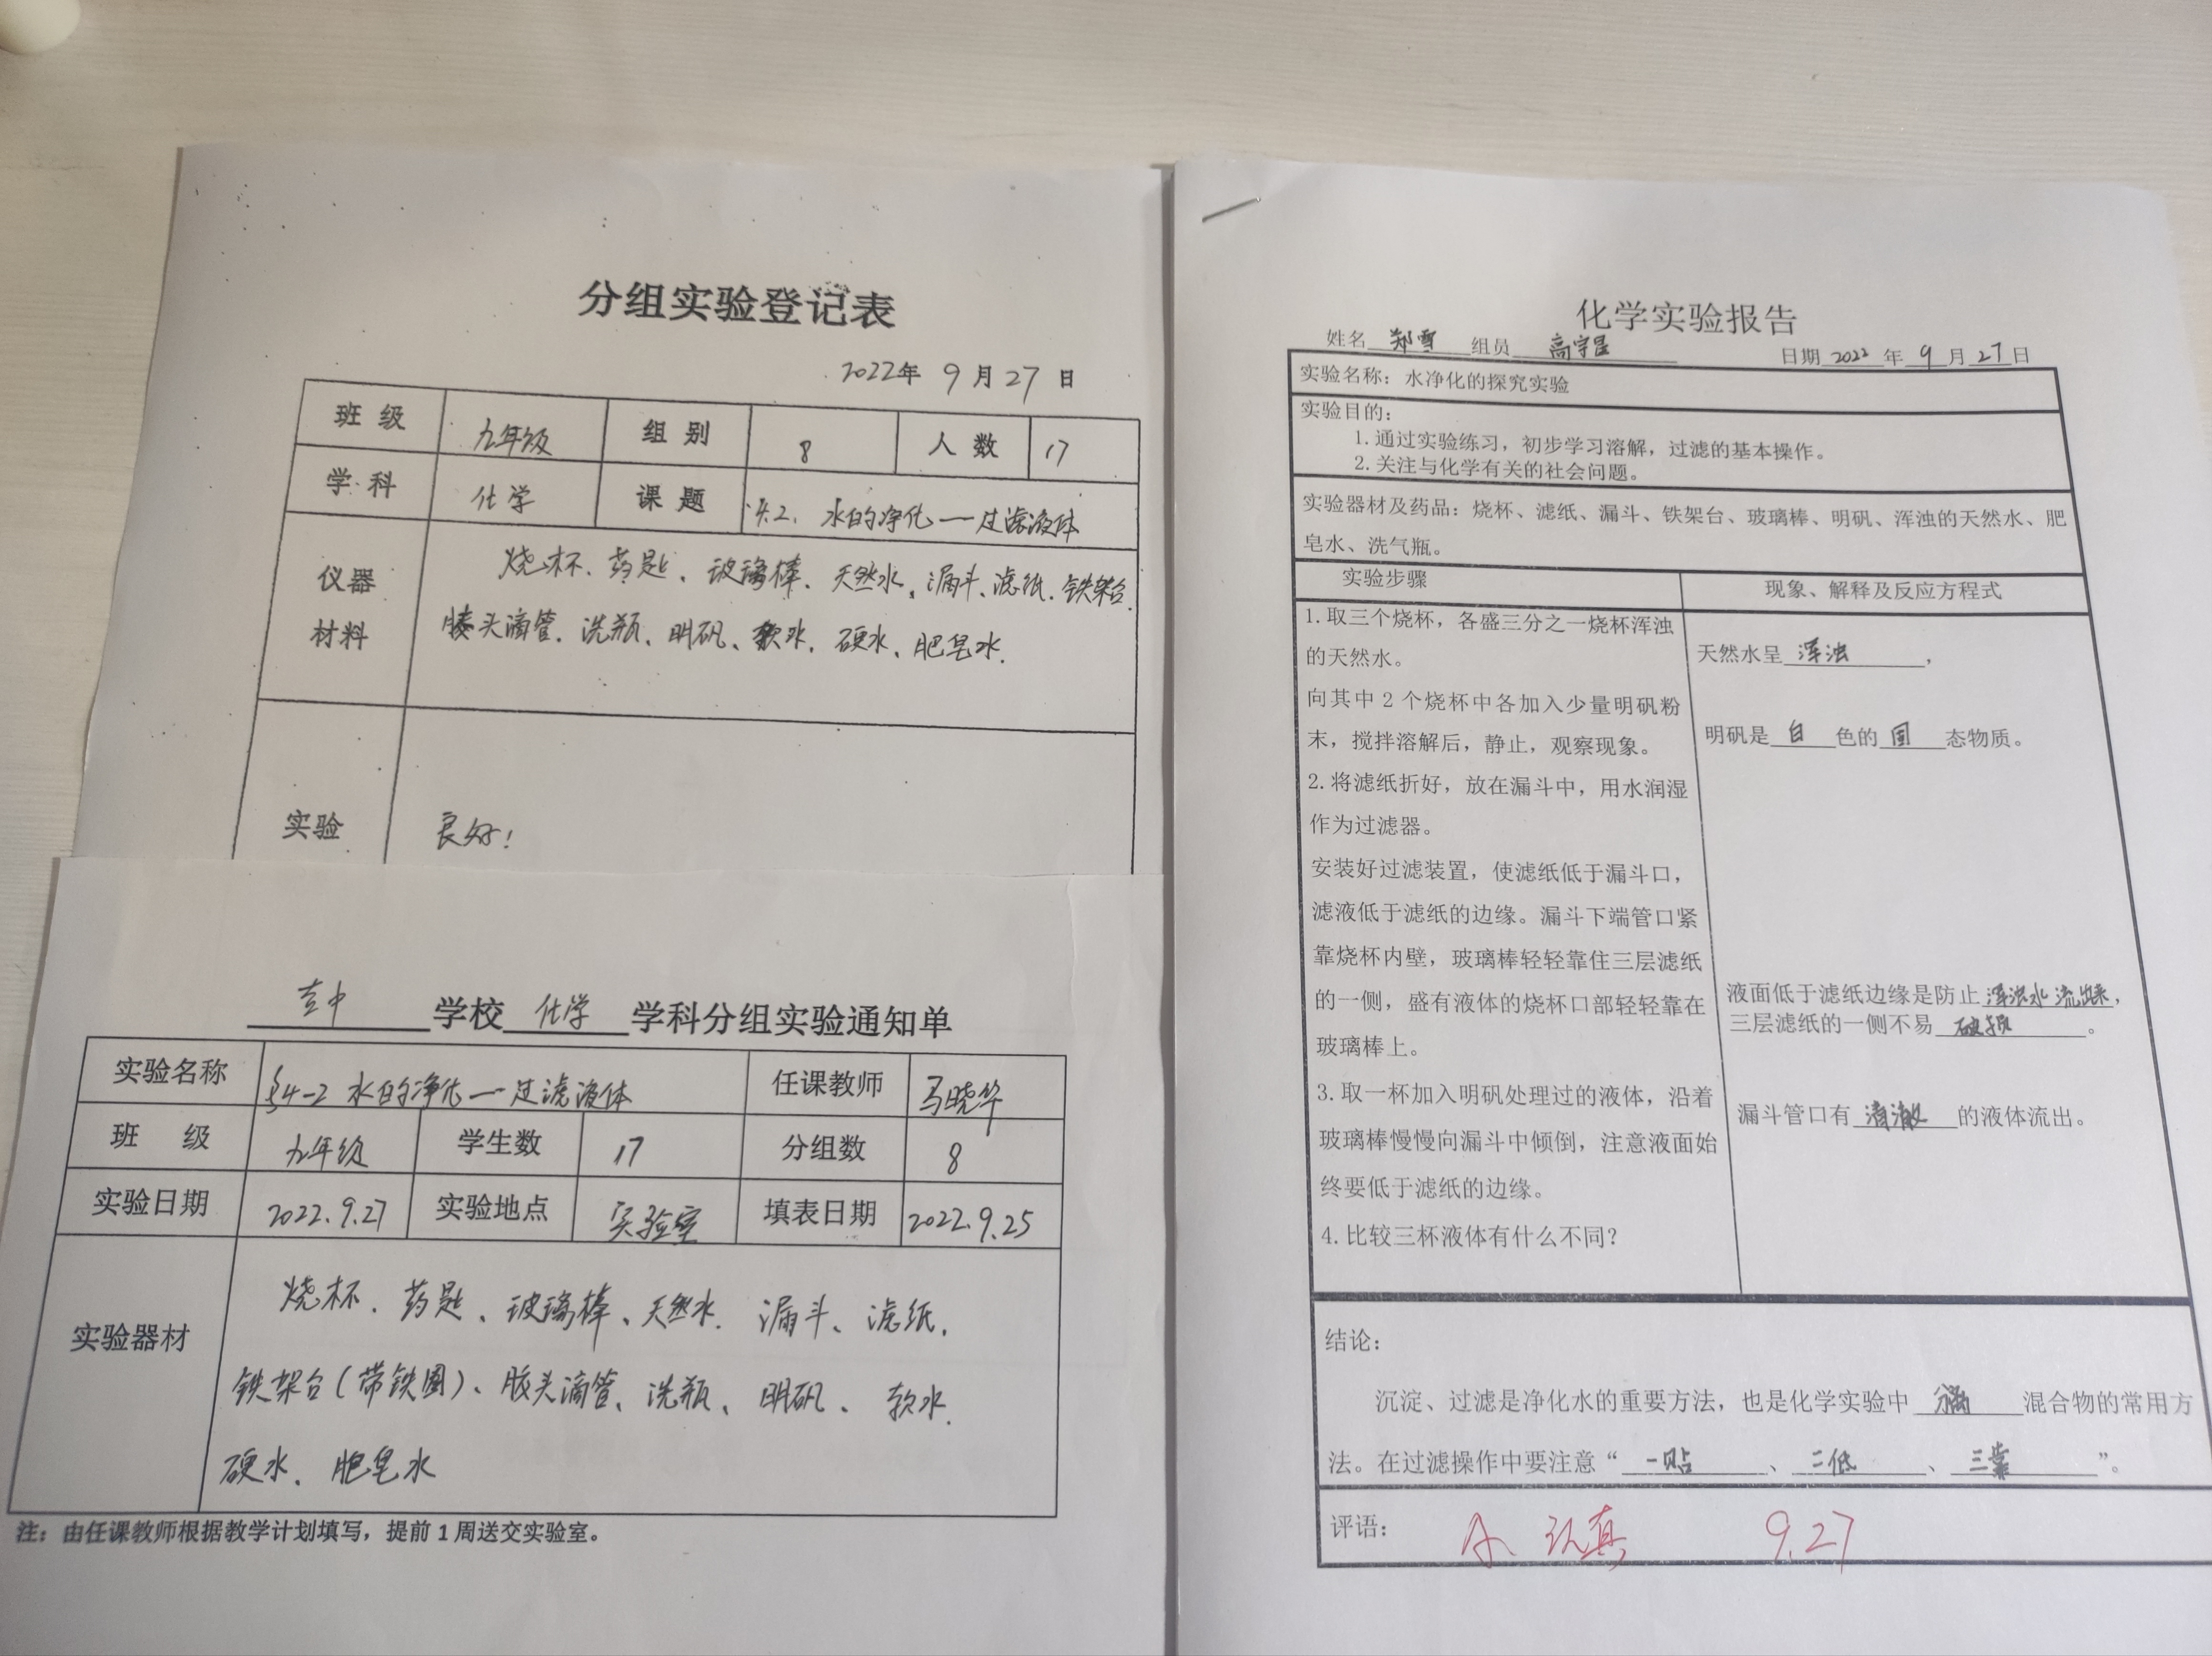 分组实验登记表
2022年 9月27日
班级 九年级 组别 8 人数 17
学科 化学 课题 4.2. 水的净化——过滤液体
仪器材料 烧杯、药匙、玻璃棒、天然水、漏斗、滤纸、铁架台、
胶头滴管、洗瓶、明矾、软水、硬水、肥皂水.
实验 良好!
学校 化学 学科分组实验通知单
实验名称 §4-2 水的净化——过滤液体 任课教师 马晓华
班 级 九年级 学生数 17 分组数 8
实验日期 2022.9.27 实验地点 实验室 填表日期 2022.9.25
实验器材 烧杯、药匙、玻璃棒、天然水、漏斗、滤纸、
铁架台(带铁圈)、胶头滴管、洗瓶、明矾、软水、
硬水、肥皂水
注：由任课教师根据教学计划填写，提前1周送交实验室。
化学实验报告
姓名 郑雪 组员 高宇 日期 2022 年 9 月 27 日
实验名称：水净化的探究实验
实验目的：
1.通过实验练习，初步学习溶解，过滤的基本操作。
2.关注与化学有关的社会问题。
实验器材及药品：烧杯、滤纸、漏斗、铁架台、玻璃棒、明矾、浑浊的天然水、肥
皂水、洗气瓶。
实验步骤 现象、解释及反应方程式
1.取三个烧杯，各盛三分之一烧杯浑浊
的天然水。
向其中2个烧杯中各加入少量明矾粉
末，搅拌溶解后，静止，观察现象。
2.将滤纸折好，放在漏斗中，用水润湿
作为过滤器。
安装好过滤装置，使滤纸低于漏斗口，
滤液低于滤纸的边缘。漏斗下端管口紧
靠烧杯内壁，玻璃棒轻轻靠住三层滤纸
的一侧，盛有液体的烧杯口部轻轻靠在
玻璃棒上。
3.取一杯加入明矾处理过的液体，沿着
玻璃棒慢慢向漏斗中倾倒，注意液面始
终要低于滤纸的边缘。
4.比较三杯液体有什么不同？
天然水呈 浑浊 ，
明矾是 白 色的 固 态物质。
液面低于滤纸边缘是防止 浑浊水流出来，
三层滤纸的一侧不易 破损 。
漏斗管口有 清澈 的液体流出。
结论：
沉淀、过滤是净化水的重要方法，也是化学实验中 分离 混合物的常用方
法。在过滤操作中要注意“ 一贴 、 二低 、 三靠 ”。
评语： A、认真 9.27